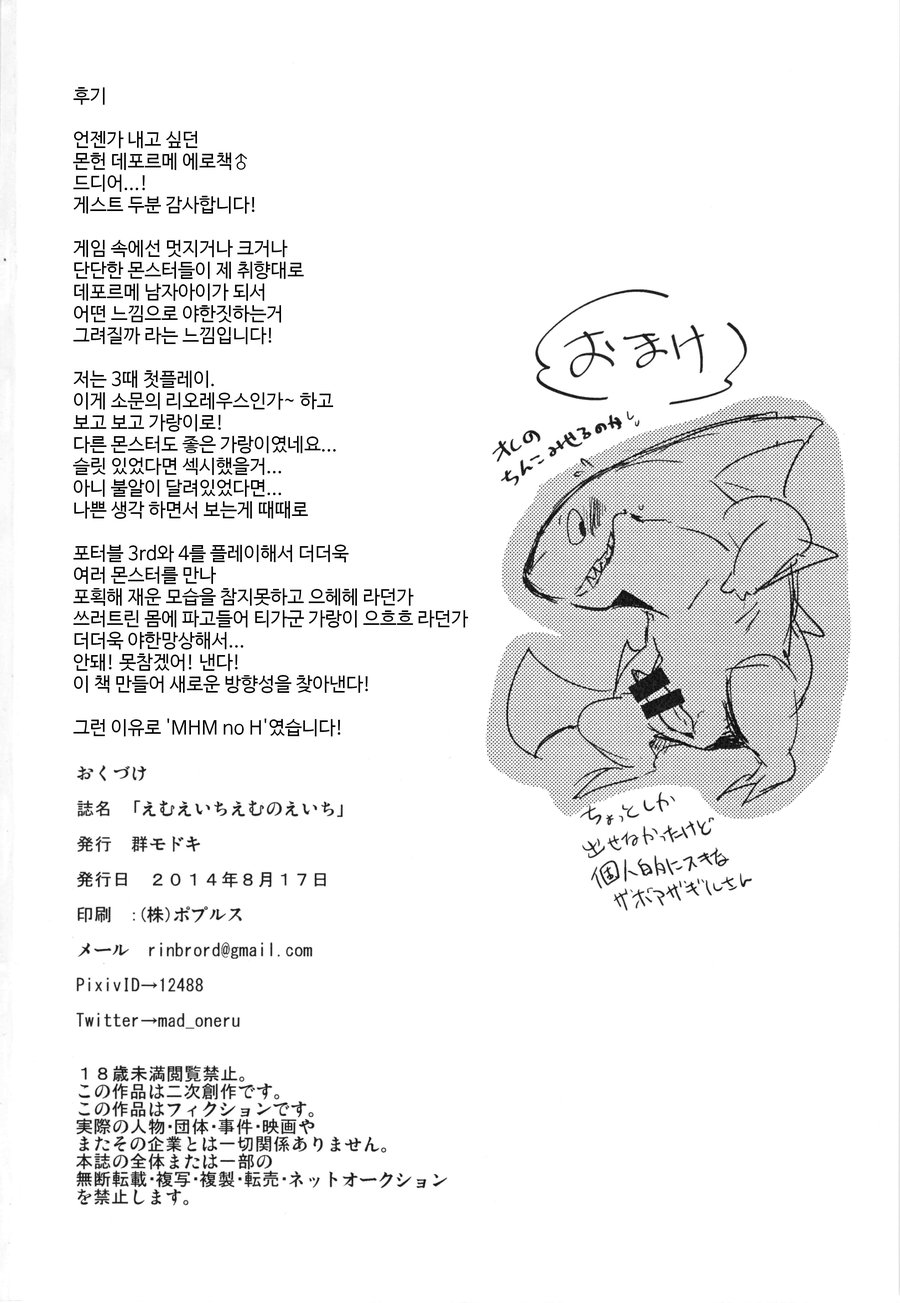 후기
언젠가 내고 싶던
몬헌 데포르메 에로책♂
드디어...!
게스트 두분 감사합니다!
게임 속에선 멋지거나 크거나
단단한 몬스터들이 제 취향대로
데포르메 남자아이가 되서
어떤 느낌으로 야한짓하는거
그려질까 라는 느낌입니다!
저는 3때 첫플레이.
이게 소문의 리오레우스인가~ 하고
보고 보고 가랑이로!
다른 몬스터도 좋은 가랑이였네요...
슬릿 있었다면 섹시했을거...
아니 불알이 달려있었다면...
나쁜 생각 하면서 보는게 때때로
포터블 3rd와 4를 플레이해서 더더욱
여러 몬스터를 만나
포획해 재운 모습을 참지못하고 으헤헤 라던가
쓰러트린 몸에 파고들어 티가군 가랑이 으흐흐 라던가
더더욱 야한망상해서...
안돼! 못참겠어! 낸다!
이 책 만들어 새로운 방향성을 찾아낸다!
그런 이유로 'MHM no H'였습니다!
おくづけ
誌名 「えむえいちえむのえいち」
発行 群モドキ
発行日 ２０１４年８月１７日
印刷 :(株)ポプルス
メール rinbrord@gmail.com
PixivID→12488
Twitter→mad_oneru
１８歳未満閲覧禁止。
この作品は二次創作です。
この作品はフィクションです。
実際の人物・団体・事件・映画や
またその企業とは一切関係ありません。
本誌の全体または一部の
無断転載・複写・複製・転売・ネットオークション
を禁止します。
おまけ
オレの
ちんこみせるのか
ちょっとしか
出せなかったけど
個人的にスキな
ザボアザギルさん